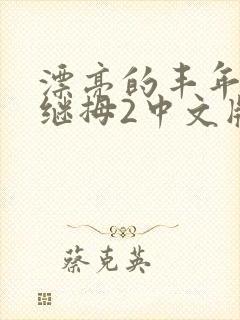 漂亮的丰年
继拇2中文版
蔡克英